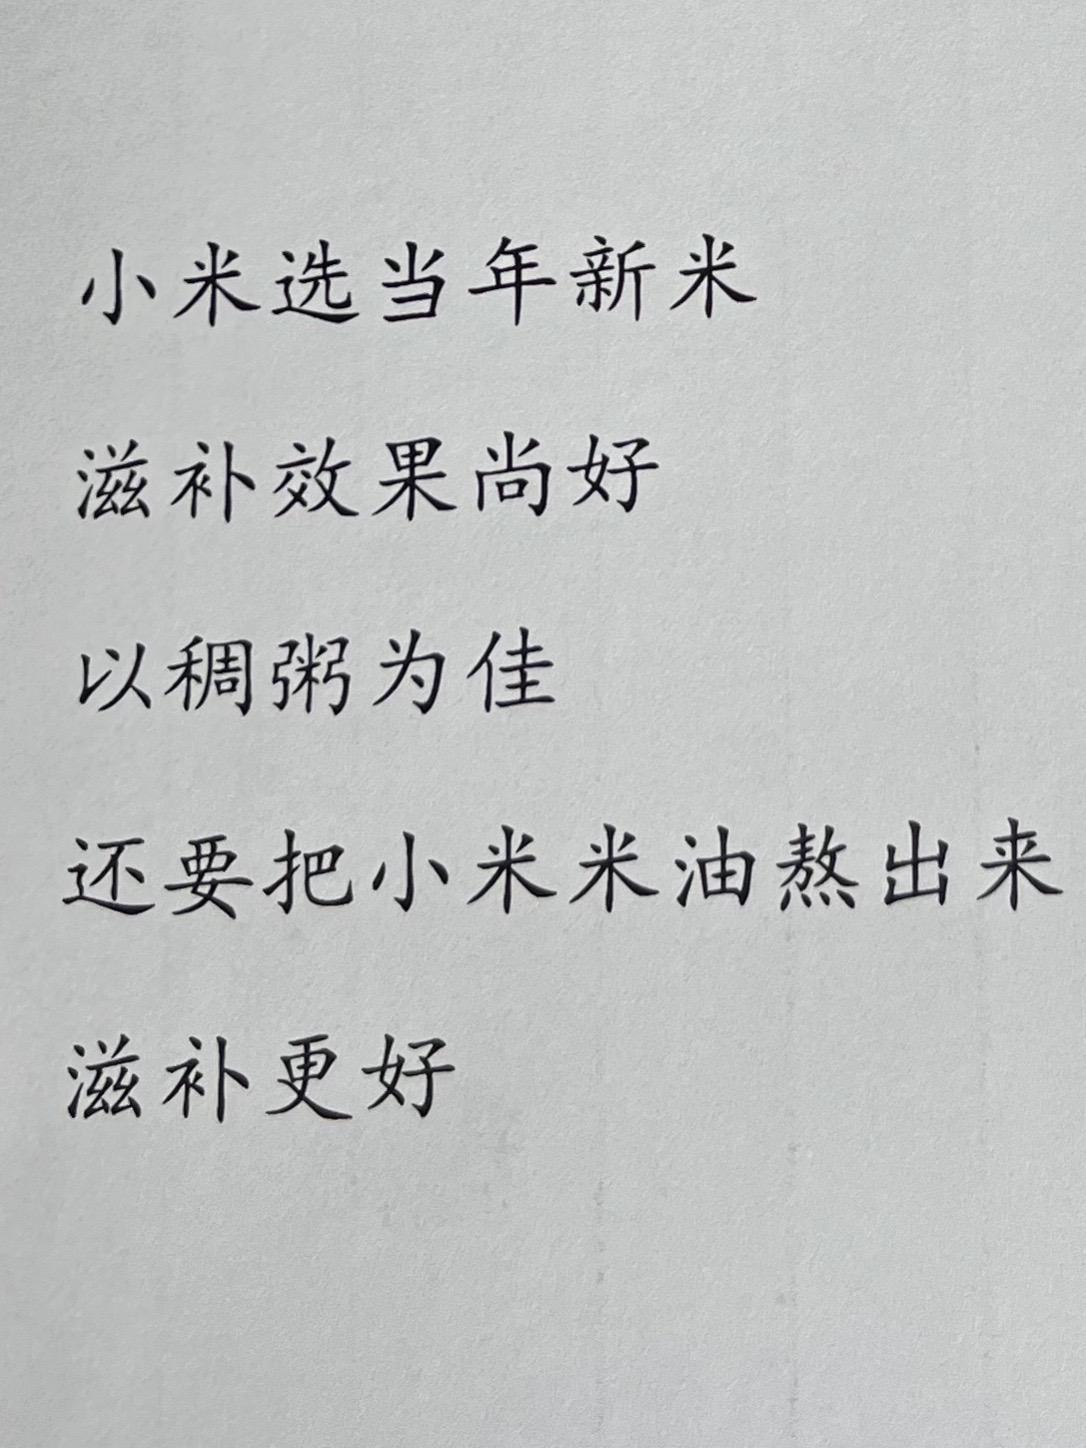 小米选当年新米
滋补效果尚好
以稠粥为佳
还要把小米米油熬出来
滋补更好